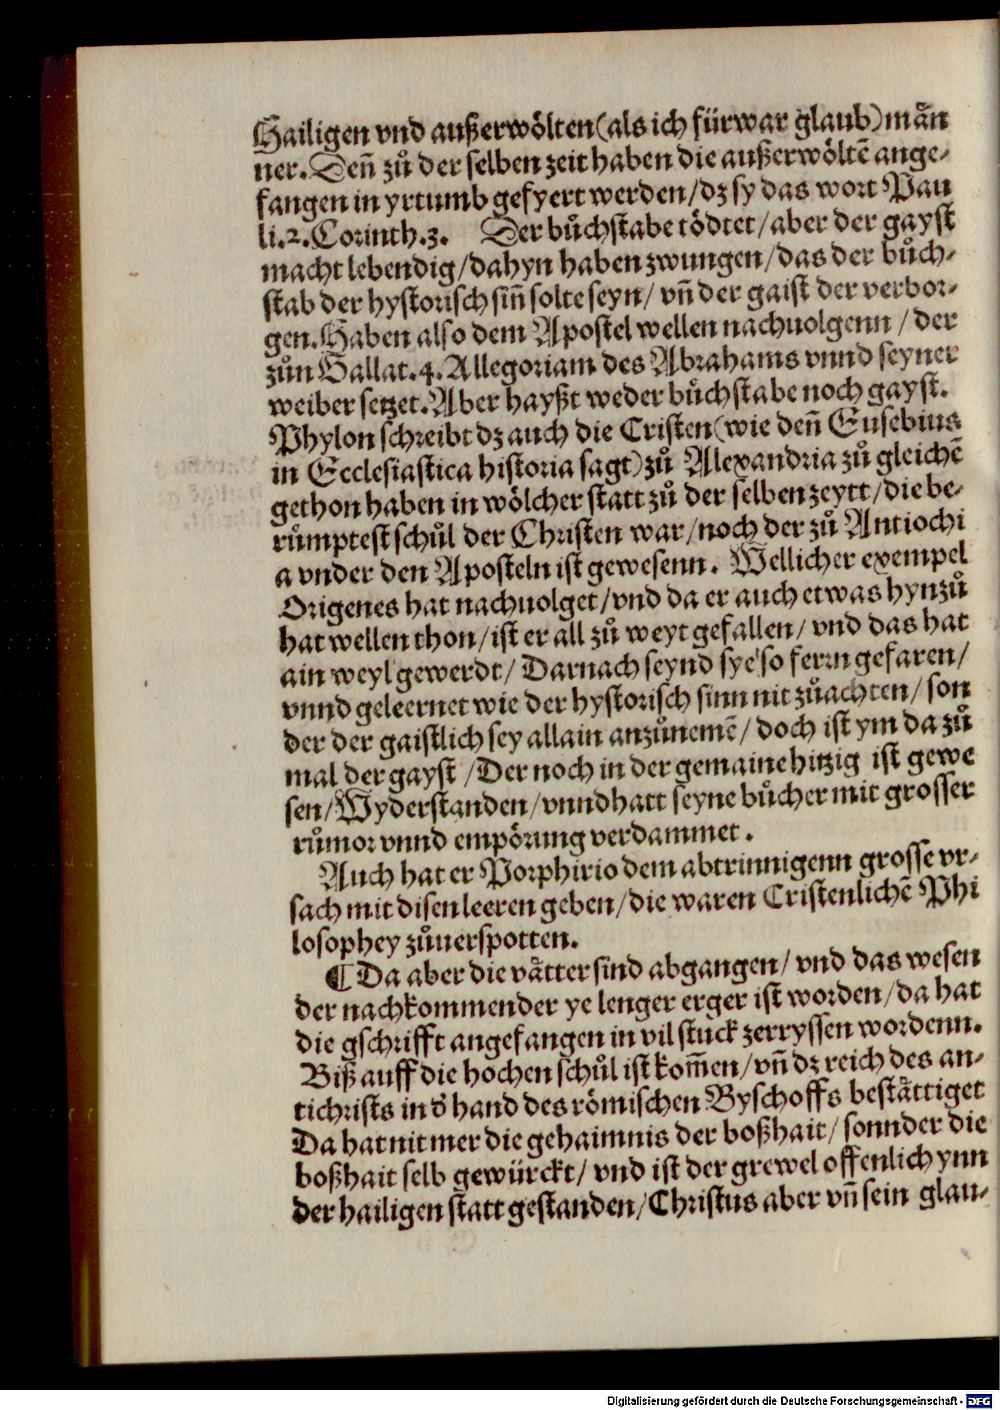 Hailigen vnd außerwölten (als ich fürwar glaub) mãn
ner. Deñ zů der selben zeit haben die außerwöltẽ ange-
fangen in yrtumb gefyert werden / dz sy das wort Pau
li. 2. Corinth. 3. Der bůchstabe tödtet / aber der gayst
macht lebendig / dahyn haben zwungen / das der bůch-
stab der hystorisch siñ solte seyn / vñ der gaist der verbor-
gen. Haben also dem Apostel wellen nachuolgenn / der
zůn Gallat. 4. Allegoriam des Abrahams vnnd seyner
weiber setzet. Aber hayßt weder bůchstabe noch gayst.
Phylon schreibt dz auch die Cristen (wie deñ Eusebius
in Ecclesiastica historia sagt) zů Alexandria zů gleichẽ
gethon haben in wölcher statt zů der selben zeytt / die be-
růmptest schůl der Christen war / noch der zů Antiochi
a vnder den Aposteln ist gewesenn. Wellicher exempel
Origenes hat nachuolget / vnd da er auch etwas hynzů
hat wellen thon / ist er all zů weyt gefallen / vnd das hat
ain weyl gewerdt / Darnach seynd sye so ferrn gefaren /
vnnd geleernet wie der hystorisch sinn nit zůachten / son
der der gaistlich sey allain anzůnemẽ / doch ist ym da zů
mal der gayst / Der noch in der gemaine hitzig ist gewe
sen / Wyderstanden / vnnd hatt seyne bůcher mit grosser
růmor vnnd empörung verdammet.
Auch hat er Porphirio dem abtrinnigenn grosse vr-
sach mit disen leeren geben / die waren Cristenlichẽ Phi
losophey zůuerspotten.
¶ Da aber die vãtter sind abgangen / vnd das wesen
der nachkommender ye lenger erger ist worden / da hat
die gschrifft angefangen in vil stuck zerryssen wordenn.
Biß auff die hochen schůl ist kom̃en / vñ dz reich des an-
tichrists in d' hand des römischen Byschoffs bestãttiget
Da hat nit mer die gehaimnis der boßhait / sonnder die
boßhait selb gewürckt / vnd ist der grewel offenlich ynn
der hailigen statt gestanden / Christus aber vñ sein glau-
Digitalisierung gefördert durch die Deutsche Forschungsgemeinschaft - DFG